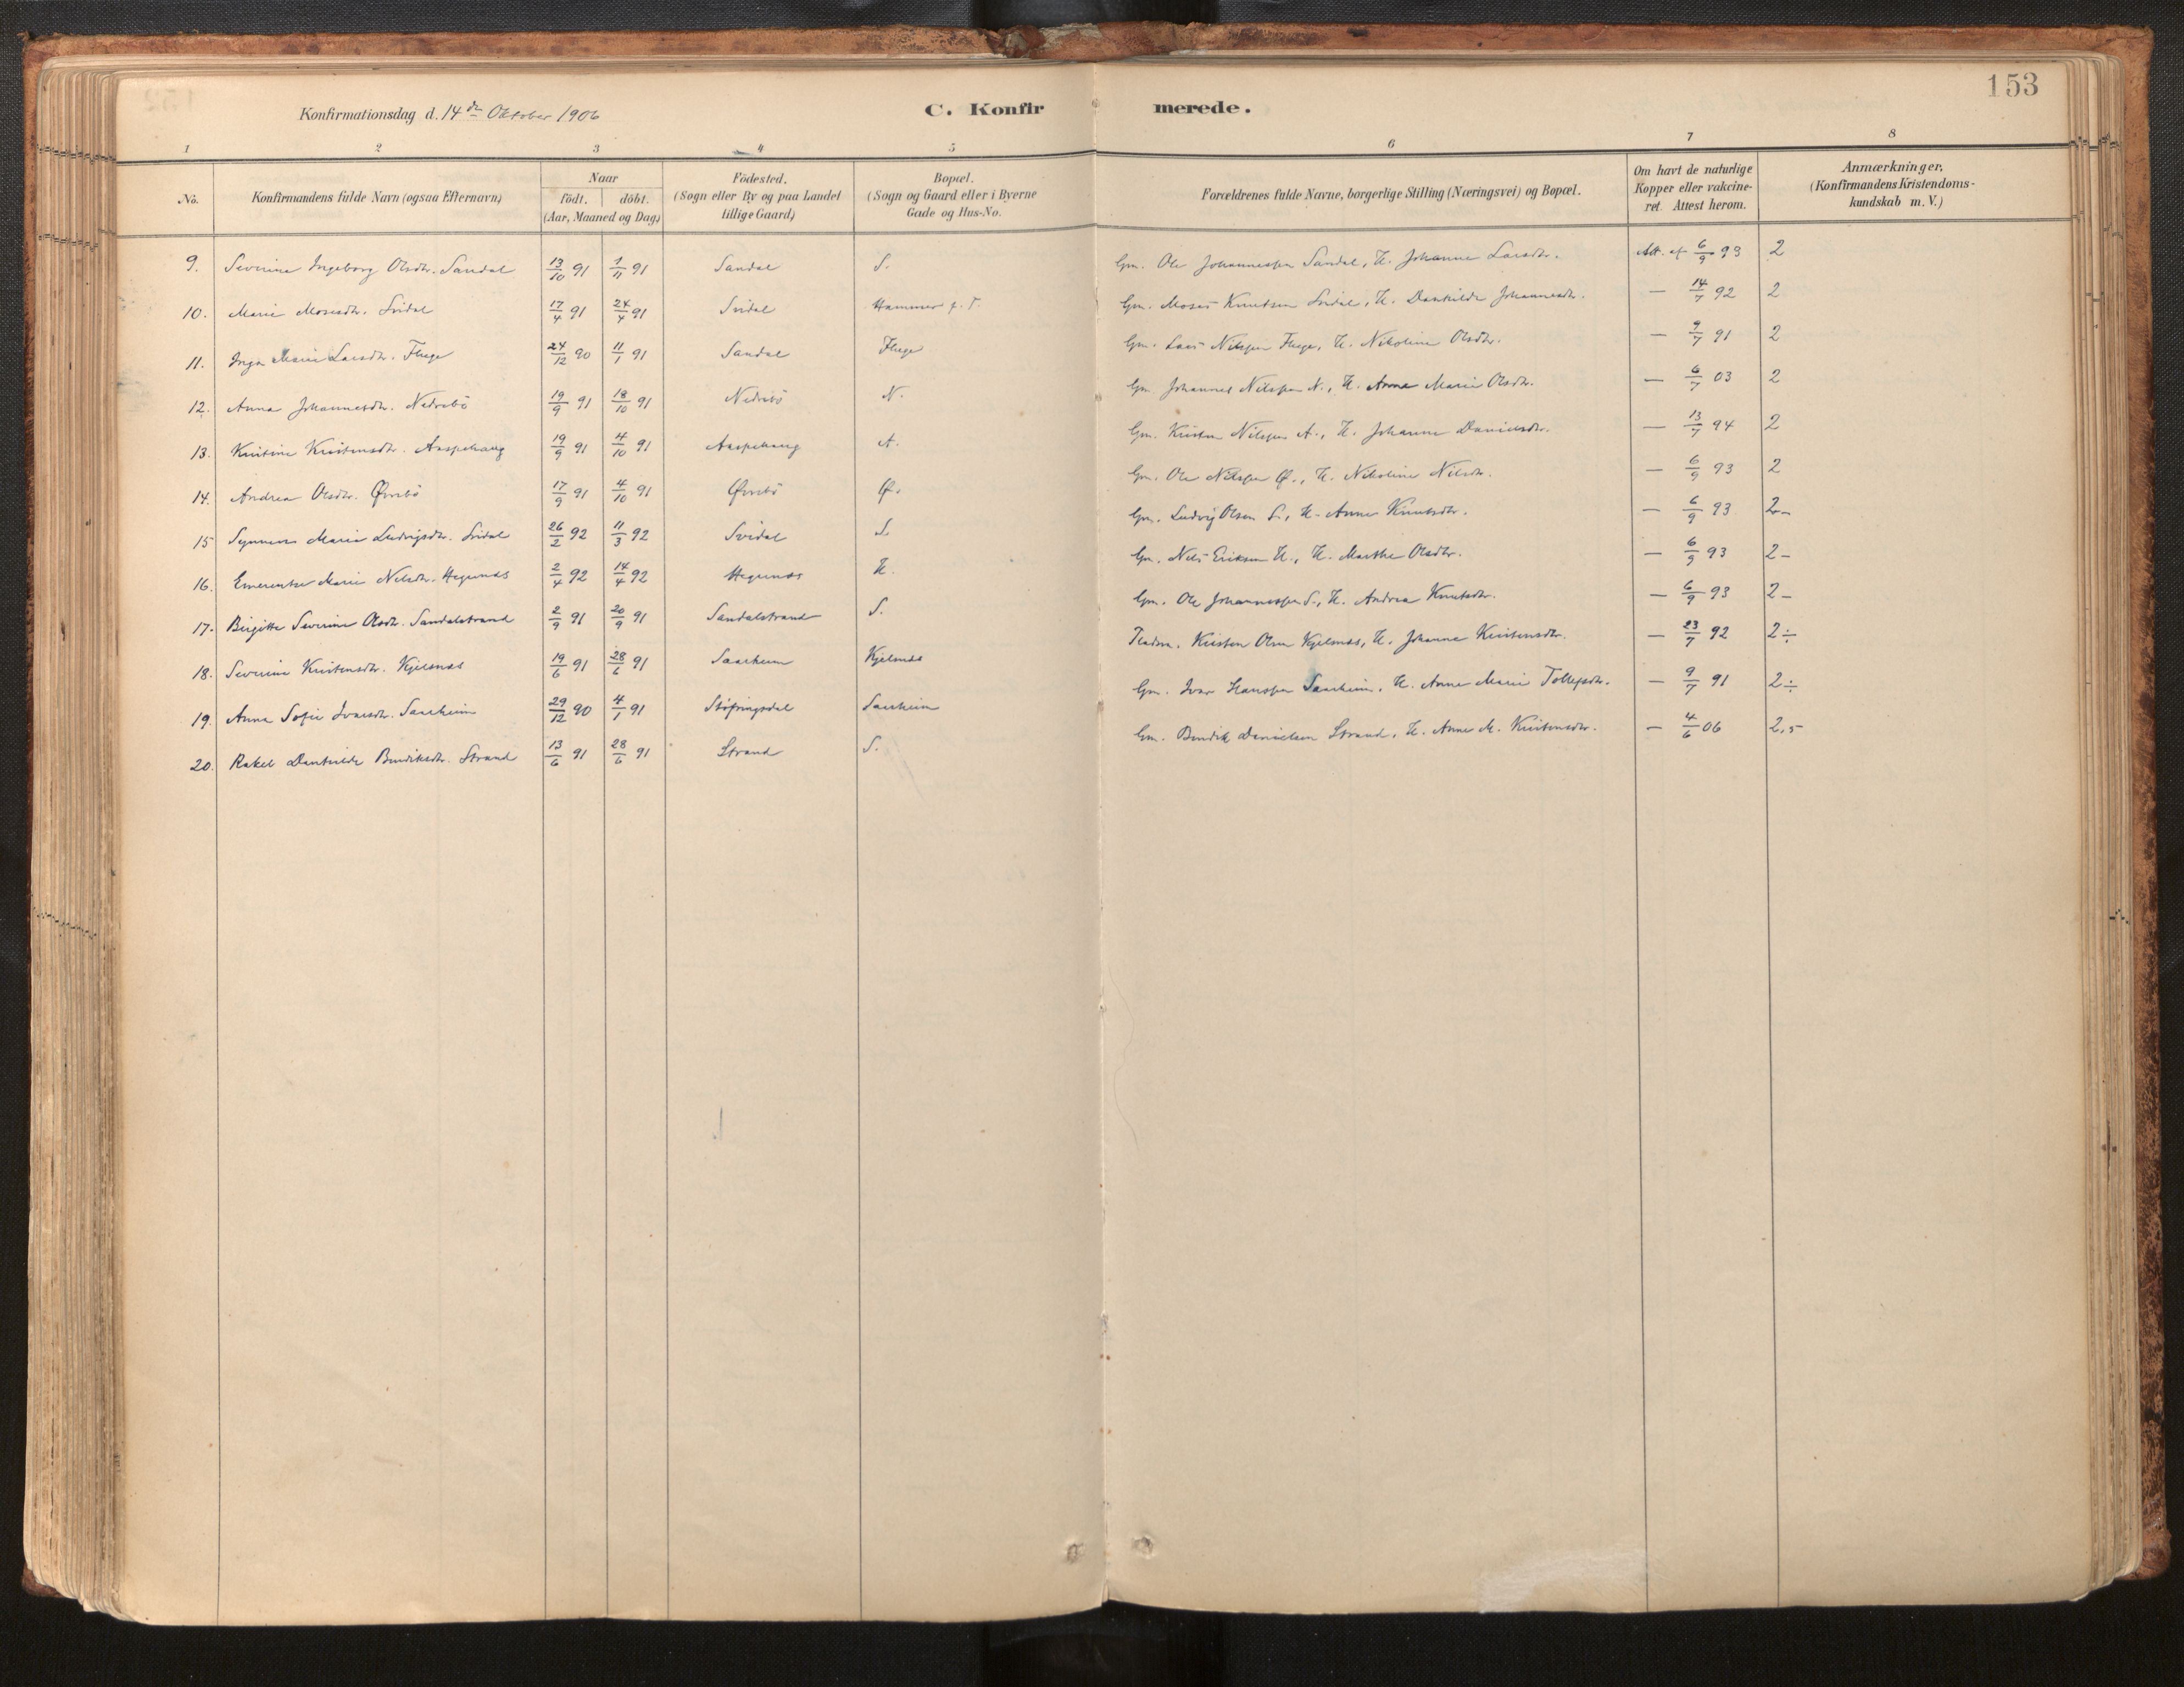 153
Konfirmationsdag d. 14de Oktober 1906 C. Konfirmerede.
1 2 3 4 5 6 7 8
No. Konfirmandens fulde Navn (ogsaa Efternavn) Naar födt. döbt. (Aar, Maaned og Dag) Födested. (Sogn eller By og paa Landet tillige Gaard) Bopæl. (Sogn og Gaard eller i Byerne Gade og Hus-No. Forældrenes fulde Navne, borgerlige Stilling (Næringsvei) og Bopæl. Om havt de naturlige Kopper eller vakcineret. Attest herom. Anmærkninger, (Konfirmandens Kristendomskundskab m. V.)
9. Severine Ingeborg Olsdtr. Sandal 13/10 91 1/11 91 Sandal S. Gm. Ole Johannessen Sandal, H. Johanne Larsdtr. Att. af 6/9 93 2
10. Marie Mosesdtr. Svidal 17/4 91 24/4 91 Svidal Hammer Gm. Moses Knutsen Svidal, H. Dankilde Johannesdtr. — 14/7 92 2
11. Inga Marie Larsdtr. Fluge 24/12 90 11/1 91 Sandal Fluge Gm. Lars Nilssen Fluge, H. Nikoline Olsdtr. — 9/7 91 2
12. Anna Johannesdtr. Nedrebö 19/9 91 18/10 91 Nedrebö N. Gm. Johannes Nilssen N., H. Anne Marie Olsdtr. — 6/7 03 2
13. Kristine Kristensdtr. Aaspehaug 19/9 91 4/10 91 Aaspehaug A. Gm. Kristen Nilssen A., H. Johanne Danielsdtr. — 13/7 94 2
14. Andrea Olsdtr. Øvrebö 17/9 91 4/10 91 Øvrebö Ø. Gm. Ole Nilssen Ø., H. Nikoline Nilsdtr. — 6/9 93 2
15 Synneve Marie Ludvigsdtr. Svidal 26/2 92 11/3 92 Svidal S. Gm. Ludvig Olsen S., H. Anne Knutsdtr. — 6/9 93 2-
16. Emerentse Marie Nilsdtr. Hegrenæs 2/4 92 14/4 92 Hegrenæs H. Gm. Nils Eriksen H., H. Marthe Olsdtr. — 6/9 93 2-
17. Birgitte Severine Olsdtr. Sandalstrand 2/9 91 20/9 91 Sandalstrand S. Gm. Ole Johannessen S., H. Andrea Knutsdtr. — 6/9 93 2-
18. Severine Kristensdtr. Kjelsnæs 19/6 91 28/6 91 Saarheim Kjelsnæs Kristen Olsen Kjelsnæs, H. Johanne Kristensdtr. — 23/7 92 2÷
19. Anna Sofie Ivarsdtr. Saarheim 29/12 90 4/1 91 Støfringsdal Saarheim Gm. Ivar Hanssen Saarheim, H. Anne Marie Tollefsdtr. — 9/7 91 2÷
20. Rakel Dankilde Bendiksdtr. Strand 13/6 91 28/6 91 Strand S. Gm. Bendik Danielsen Strand, H. Anne M. Kristensdtr. — 4/6 06 2,5